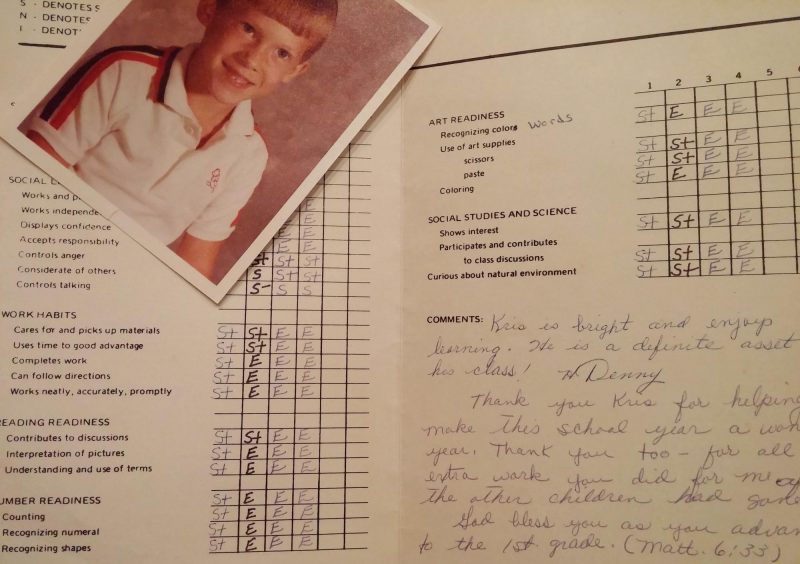 S - DENOTES
N - DENOTES
I - DENOT
SOCIAL
Works and p
Works independe
Displays confidence
Accepts responsibility
Controls anger
Considerate of others
Controls talking
E
E
E
E
St St St
S St St
S- S S
WORK HABITS
Cares for and picks up materials St St E E
Uses time to good advantage St St E E
Completes work St E E E
Can follow directions St E E E
Works neatly, accurately, promptly St E E E
READING READINESS
Contributes to discussions St St E E
Interpretation of pictures St E E E
Understanding and use of terms St E E E
NUMBER READINESS St E E E
Counting St E E E
Recognizing numeral St E E E
Recognizing shapes St E E E
1 2 3 4 5 6
ART READINESS
Recognizing colors words St E E E
Use of art supplies St St E E
scissors St St E E
paste St E E E
Coloring
SOCIAL STUDIES AND SCIENCE
Shows interest St St E E
Participates and contributes
to class discussions St St E E
Curious about natural environment St St E E
COMMENTS: Kris is bright and enjoys
learning. He is a definite asset
his class! H Denny
Thank you Kris for helping
make this school year a won
year. Thank you too - for all
extra work you did for me
the other children had some
God bless you as you advan
to the 1st. grade. (Matt. 6:33)